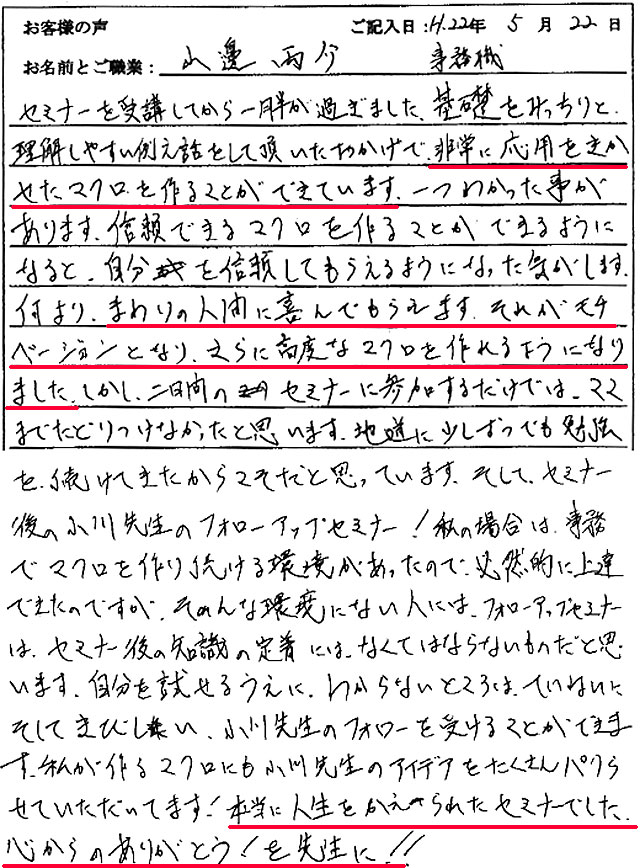 お客様の声 ご記入日:H.22年 5 月 22 日
お名前とご職業: 山邉 雨今 事務職
セミナーを受講してから一ヶ月半が過ぎました。基礎をみっちりと、
理解しやすい例え話をして頂いたおかげで、非常に応用をきか
せたマクロを作ることができています。一つわかった事が
あります。信頼できるマクロを作ることができるように
なると、自分を信頼してもらえるようになった気がします。
何より、まわりの人間に喜んでもらえます。それがモチ
ベーションとなり、さらに高度なマクロを作れるようになり
ました。しかし、二日間のセミナーに参加するだけでは、ここ
までたどりつけなかったと思います。地道に少しずつでも勉強
を続けてきたからこそだと思っています。そして、セミナー
後の小川先生のフォローアップセミナー!私の場合は、事務
でマクロを作り続ける環境があったので、必然的に上達
できたのですが、そのような環境にない人には、フォローアップセミナー
は、セミナー後の知識の定着には、なくてはならないものだと思
います。自分を試せるうえに、わからないところは、ていねいに
そしてきびしい、小川先生のフォローを受けることができま
す。私が作るマクロにも小川先生のアイデアをたくさんパクら
せていただいてます!本当に人生をかえられたセミナーでした。
心からのありがとう!を先生に!!